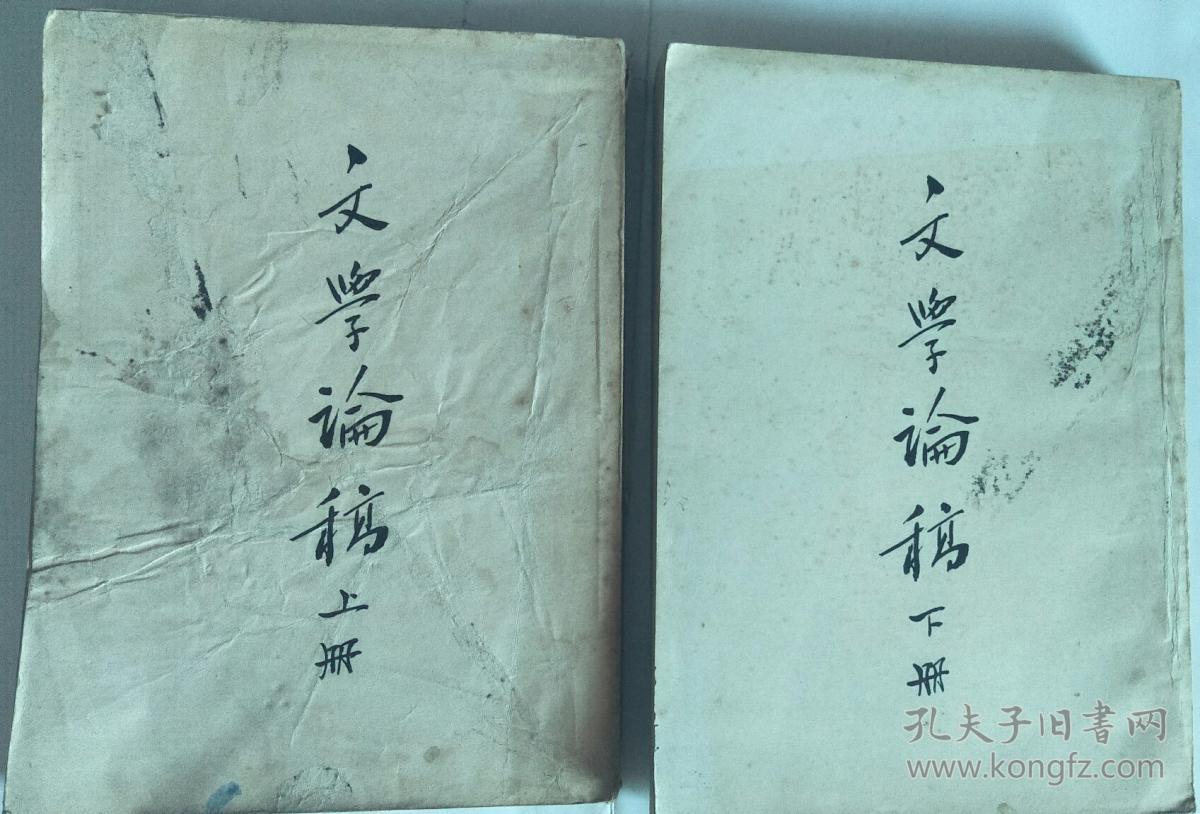 文學論稿
上册
文學論稿
下册
孔夫子旧書网
www.kongfz.com